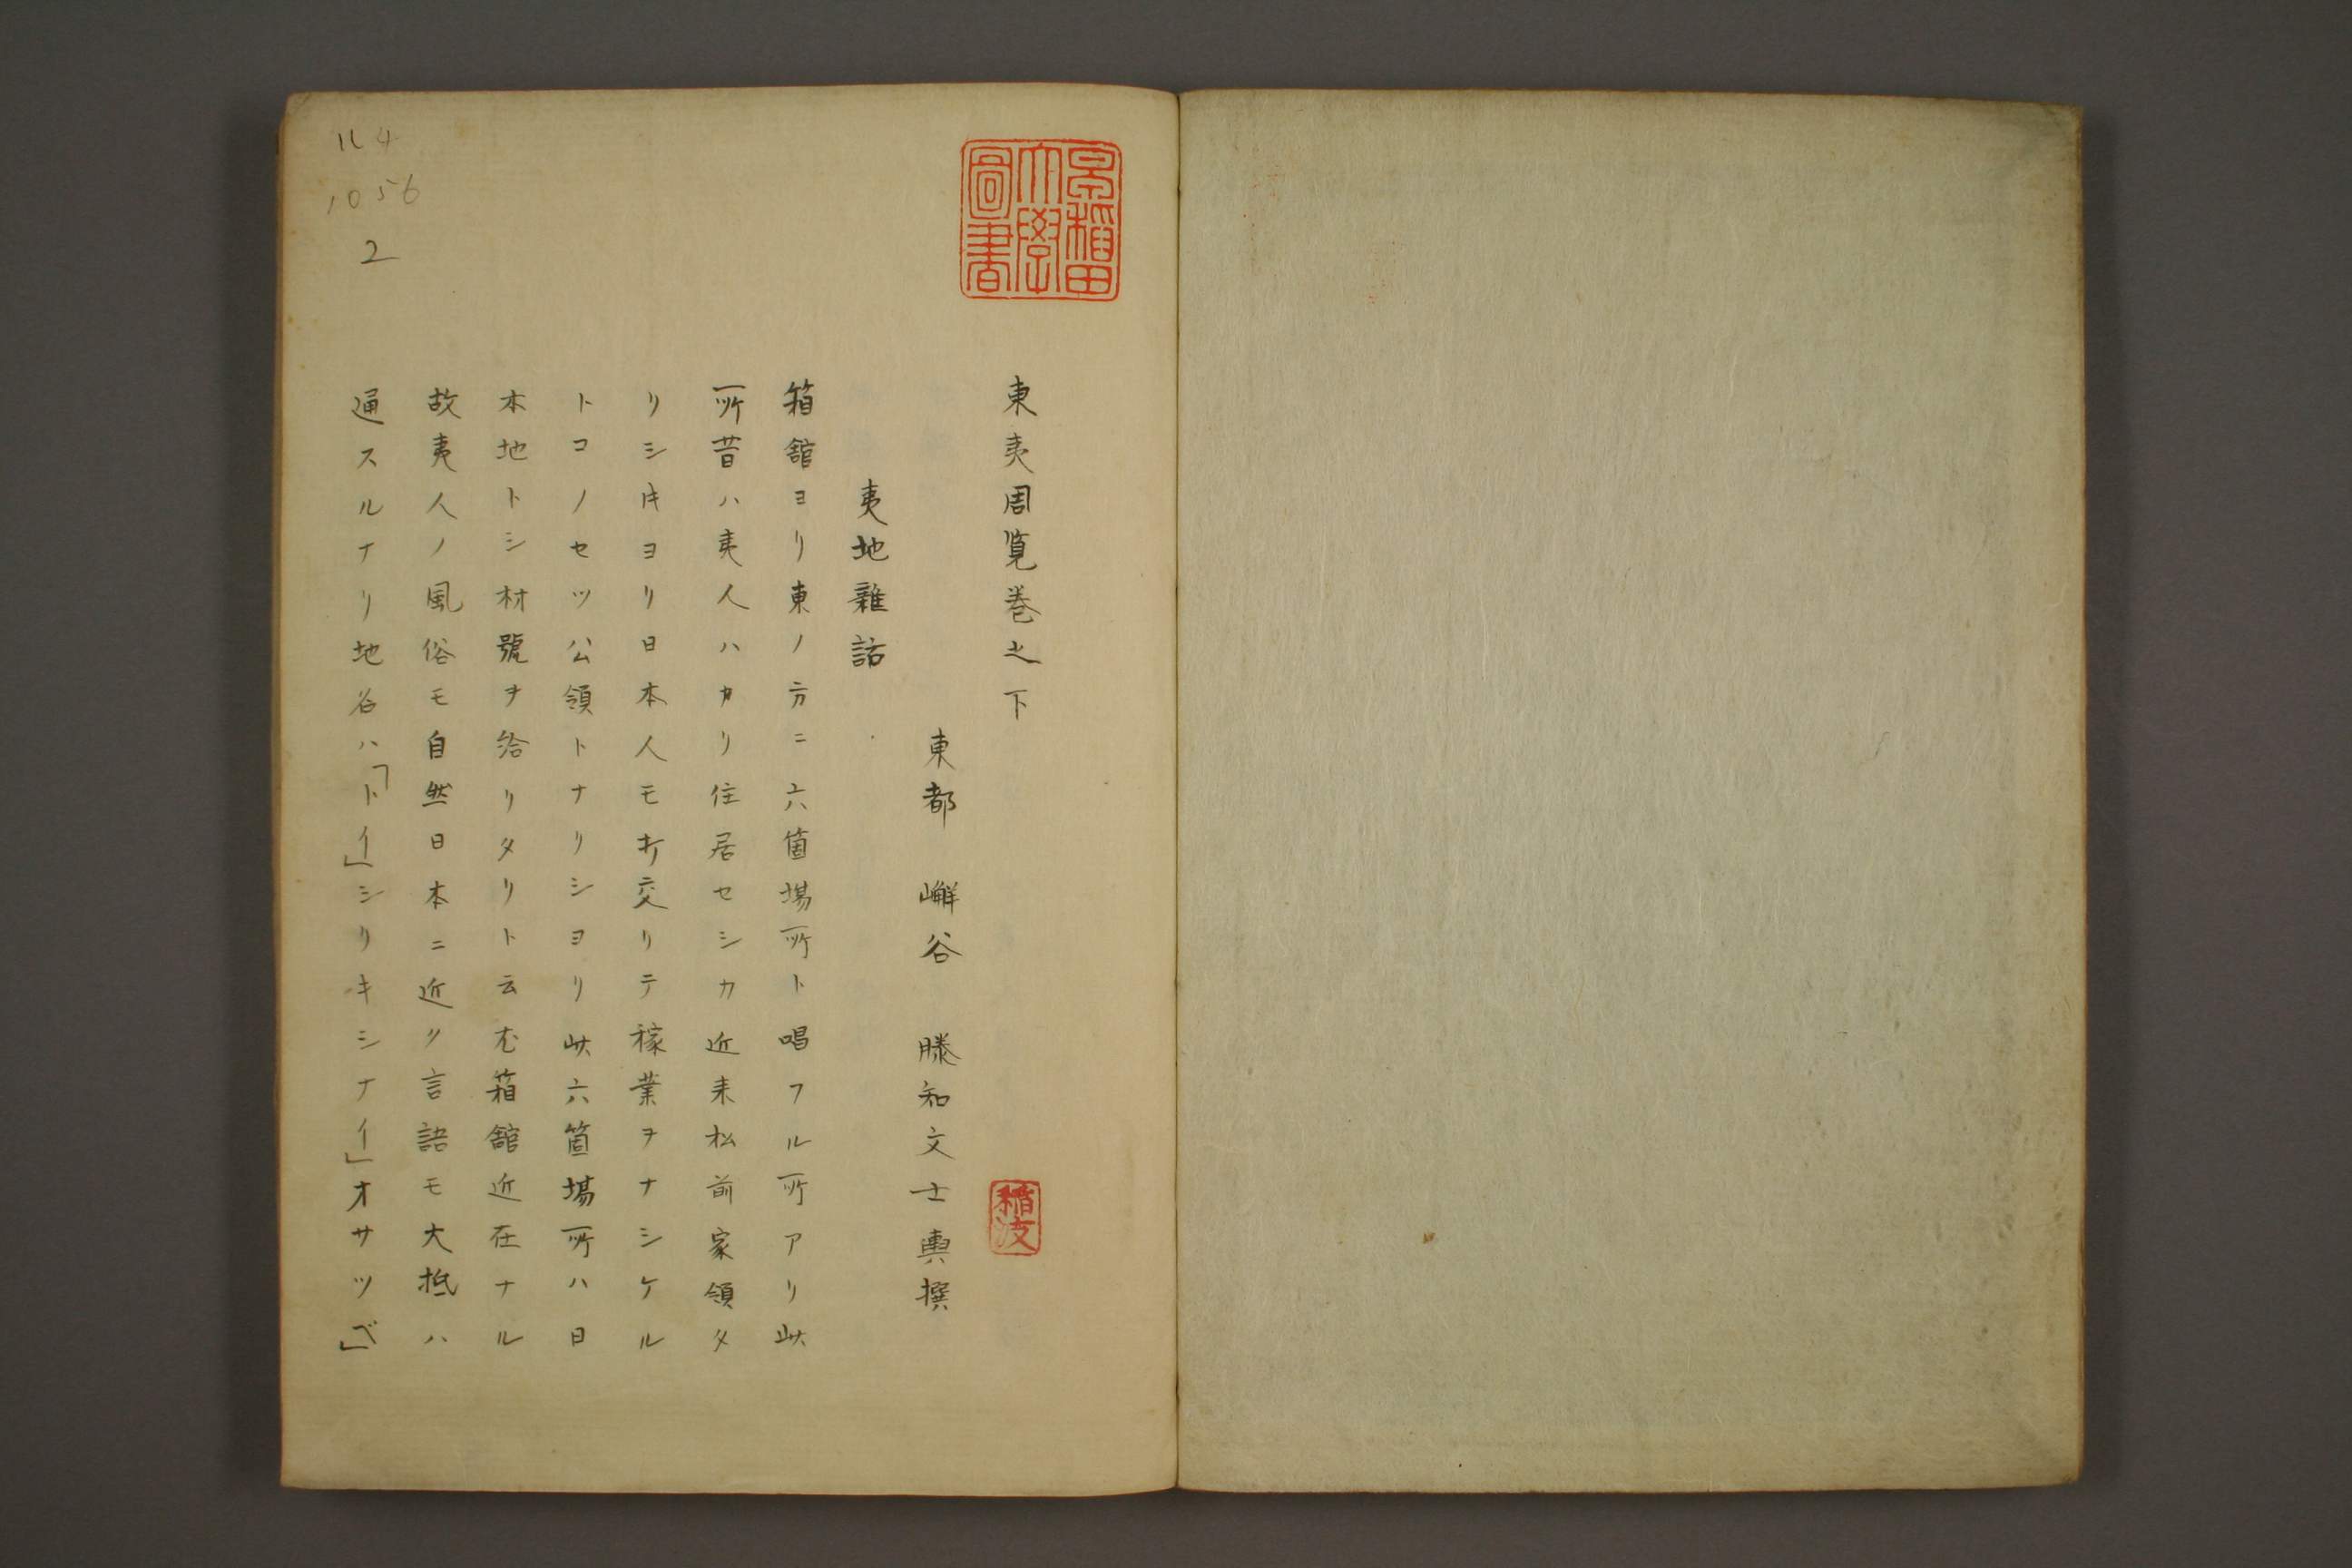 東夷周覧巻之下
東都 嶰谷 滕知文士輿撰
夷地雜話
箱舘ヨリ東ノ方ニ六箇場所ト唱フル所アリ此
所昔ハ夷人ハカリ住居セシカ近来松前家領タ
リシ𪜈ヨリ日本人モ打交リテ稼業ヲナシケル
トコノセツ公領トナリシヨリ此六箇場所ハ日
本地トシ村號ヲ給リタリト云尤箱舘近在ナル
故夷人ノ風俗モ自然日本ニ近ク言語モ大抵ハ
通スルナリ地谷ハ「トイ」シリキシナイ」オサツベ」
早稲田大學圖書
ル4
1056
2